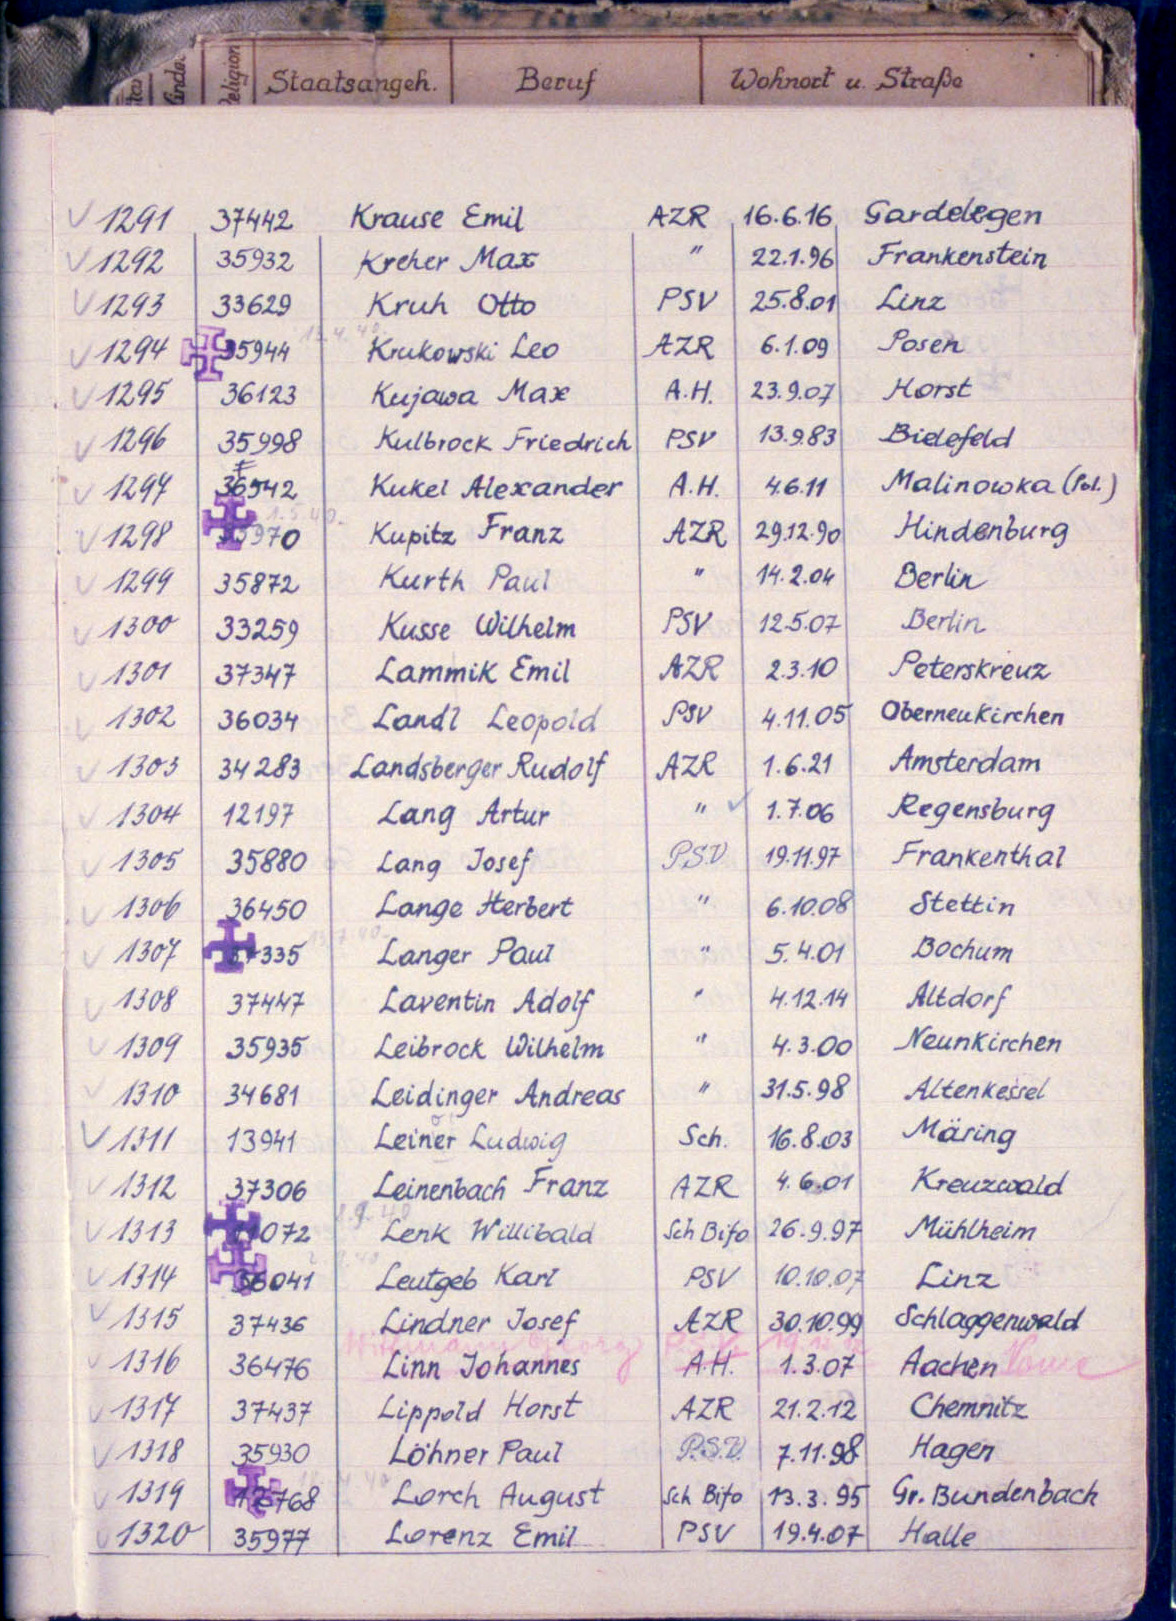 Kinder Religion Staatsangeh. Beruf Wohnort u. Straße
1291 37442 Krause Emil AZR 16.6.16 Gardelegen
1292 35932 Kreher Max " 22.1.96 Frankenstein
1293 33629 Kruh Otto PSV 25.8.01 Linz
1294 35944 Krukowski Leo AZR 6.1.09 Posen
1295 36123 Kujawa Max A.H. 23.9.07 Horst
1296 35998 Kulbrock Friedrich PSV 13.9.83 Bielefeld
1297 36542 Kukel Alexander A.H. 4.6.11 Malinowka (Pol.)
1298 35970 1.5.40. Kupitz Franz AZR 29.12.90 Hindenburg
1299 35872 Kurth Paul " 14.2.04 Berlin
1300 33259 Kusse Wilhelm PSV 12.5.07 Berlin
1301 37347 Lammik Emil AZR 2.3.10 Peterskreuz
1302 36034 Landl Leopold PSV 4.11.05 Oberneukirchen
1303 34283 Landsberger Rudolf AZR 1.6.21 Amsterdam
1304 12197 Lang Artur " 1.7.06 Regensburg
1305 35880 Lang Josef P.S.V 19.11.97 Frankenthal
1306 36450 Lange Herbert " 6.10.08 Stettin
1307 37335 Langer Paul " 5.4.01 Bochum
1308 37447 Laventin Adolf " 4.12.14 Altdorf
1309 35935 Leibrock Wilhelm " 4.3.00 Neunkirchen
1310 34681 Leidinger Andreas " 31.5.98 Altenkessel
1311 13941 Leiner Ludwig Sch. 16.8.03 Märing
1312 37306 Leinenbach Franz AZR 4.6.01 Kreuzwald
1313 Lenk Willibald Sch Bifo 26.9.97 Mühlheim
1314 36041 Leutgeb Karl PSV 10.10.07 Linz
1315 37436 Lindner Josef AZR 30.10.99 Schlaggenwald
1316 36476 Linn Johannes A.H. 1.3.07 Aachen
1317 37437 Lippold Horst AZR 21.2.12 Chemnitz
1318 35930 Löhner Paul P.S.V. 7.11.98 Hagen
1319 Lorch August Sch Bifo 13.3.95 Gr. Bundenbach
1320 35977 Lorenz Emil PSV 19.4.07 Halle